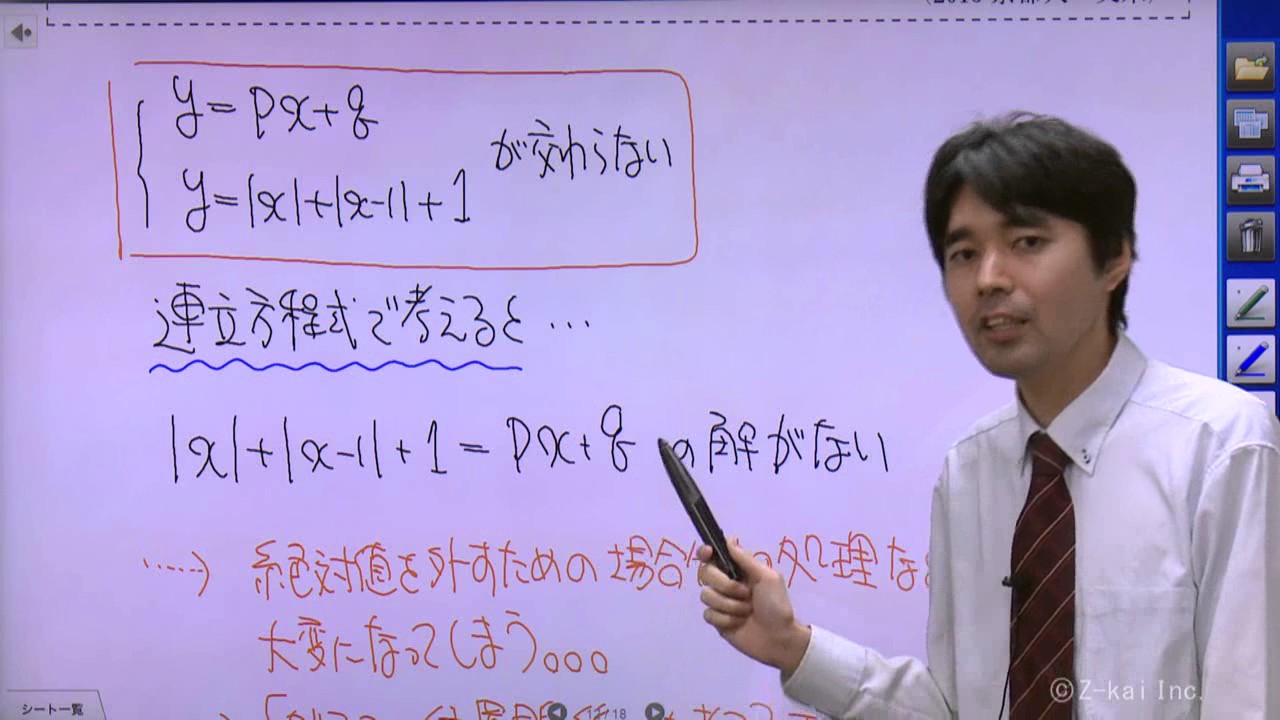 y=px+q
y=|x|+|x-1|+1
が交わらない
連立方程式で考えると…
|x|+|x-1|+1=px+qの解がない
……> 絶対値を外すための場合 の処理な
大変になってしまう。。。
18
シート一覧
©Z-kai Inc.